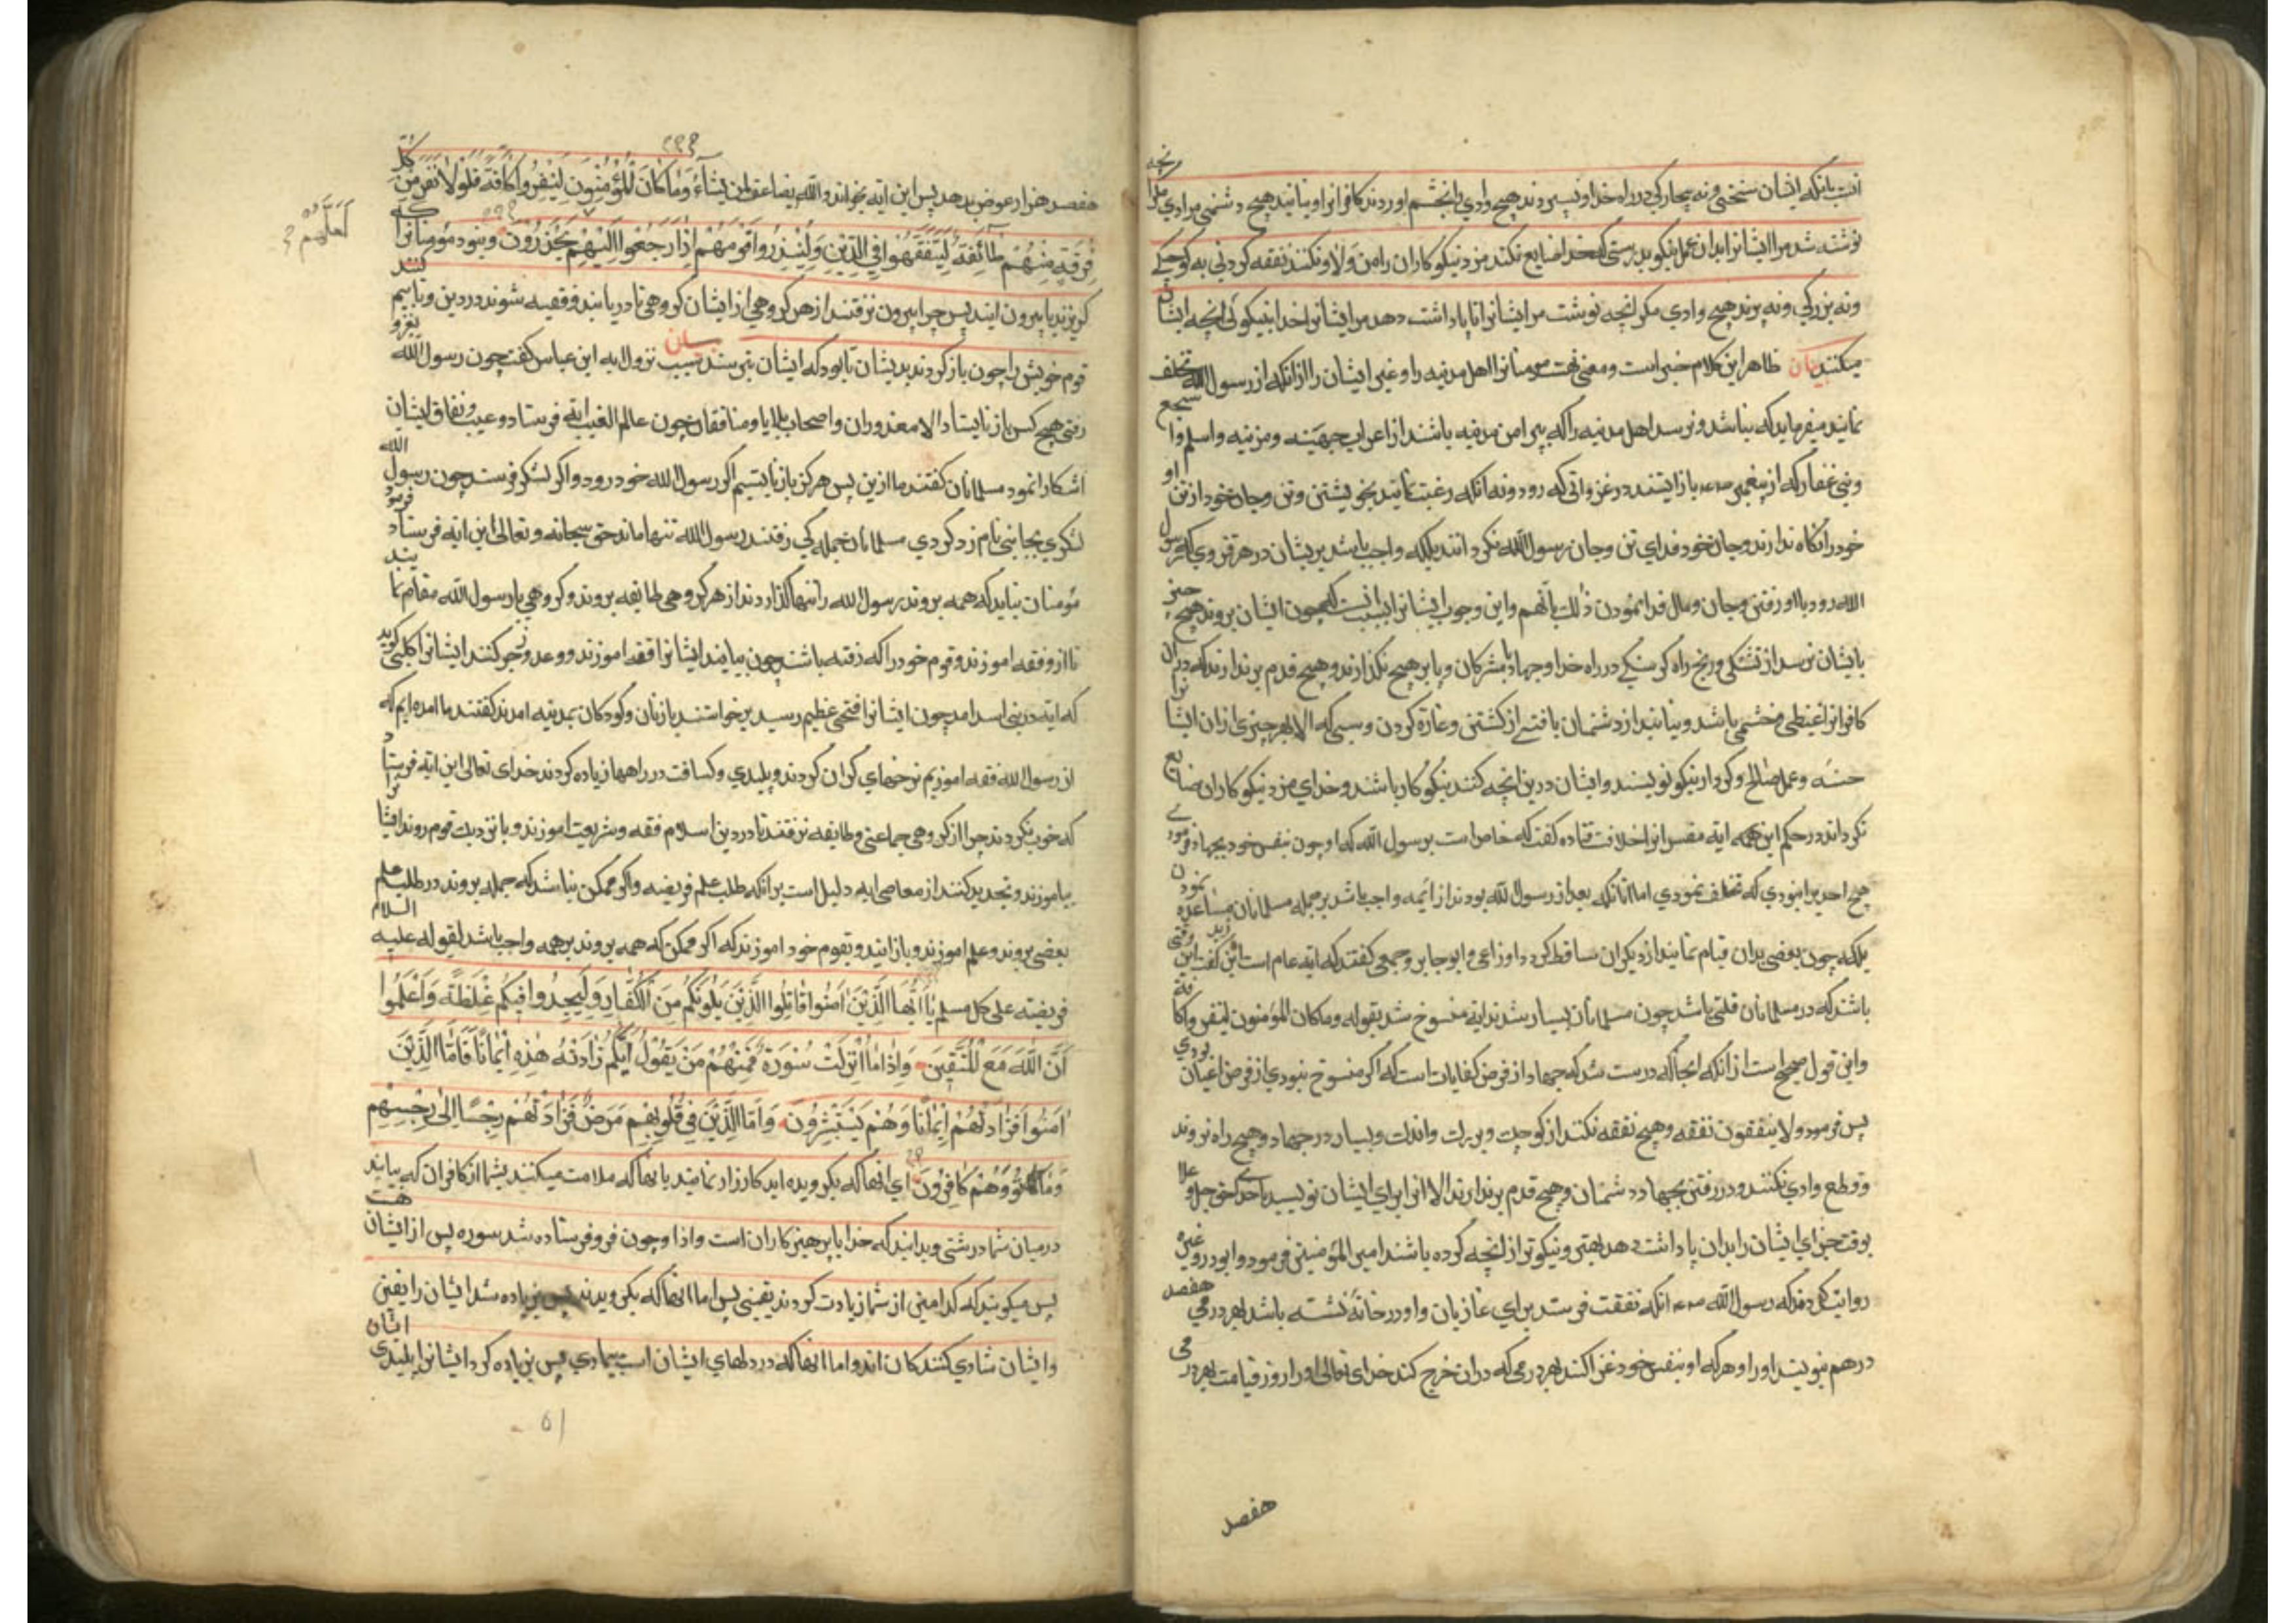 انست بانکه ایشان سختی و نه بیچارکی در راه خدا و نسپردند هیچ وادی را بخشم اوردند کافرانرا و نیابند هیچ دشمنی مرادی مکر انچه
نوشته شد مرا ایشانرا بدان عمل نیکو بدرستی که خدا ضایع نکند مزد نیکوکاران را من ولا و نکنند نفقه کردنی به کوچکی
ونه بزرکی ونه برند هیچ وادی مکر انچه نوشت مر ایشانرا تا پاداشت دهد مر ایشانرا خدا بنیکوئی انچه ایشان
میکنند بیان ظاهر این کلام خبر است و معنی نهت مومنانرا اهل مدنیه را و غیر ایشان را از انکه از رسول الله تخلف
نمایند میفرماید که نباشد و نرسد اهل مدنیه را که پیرامن مدنیه باشند از اعراب جهینه و مزنیه و اسلم و اشجع
وبنی غفار که از پیغمبر باز ایستند در غزواتی که رود و نه انکه رغبت نمایند بخویشتن وتن وجان خود از تن او
خود را نکاه ندارند وجان خود فدای تن وجان رسول الله نکردانند بلکه واجب باشد بریشان در هر غزوی که رسول
الله رود با او رفتن وجان ومال فدا نمودن ذلك بانهم واین وجوب ایشانرا بسبب انست که چون ایشان بروند هیچ چیز
بایشان نرسد از تشنکی ورنج راه کرسنکی در راه خدا وجهاد با مشرکان وپا بر هیچ نکذارند وهیچ قدم برندارند که دران
کافرانرا غیظی وخشمی باشد ونیابند از دشمنان یافتنی از کشتن وغارة کردن وسبی که الا بهر چیزی ازان ایشانرا
حسنه وعمل صالح وکردار نیکو نویسند وایشان درین انچه کنند نیکوکار باشند وخدای مزد نیکوکاران ضایع
نکرداند در حکم این همه ایه مفسرانرا خلافت قتاده کفت که خاص است برسول الله که او چون بنفس خود بجهاد فرمودی
هیچ احدیرا نبودی که تخلف نمودی اما انانکه بعد از رسول الله بودند از ائمه واجب باشد بر جمله مسلمانان مساعده نمودن
بلکه چون بعضی بدان قیام نمایند از دیکران ساقط کردد اوزاعی وابو جابر وجمعی کفتند که ایه عام است این کفت این وقتی
باشد که در مسلمانان قلتی باشد چون مسلمانان بسیار شدند ایه منسوخ شد بقوله وماکان المؤمنون لینفروا کافة
واین قول صحیح است از انکه انجا که درست شد که جهاد از فرض کفایات است که اکر منسوخ نبودی از فرض اعیان بودی
پس فرمود ولا ینفقون نفقه وهیچ نفقه نکنند از کوچك وبزرك واندك وبسیار در جهاد وهیچ راه نروند
وقطع وادی نکنند ودر رفتن بجهاد دشمنان وهیچ قدم برندارند الا انرا برای ایشان نویسند تا حق جل وعلا
بوقت جزای ایشان را بدان پاداشت دهد بهتر ونیکوتر از انچه کرده باشند امیر المؤمنین فرمود وابو درو غیره
روایت کردند که رسول الله انکه نفقت فرستد برای غازیان و او در خانه نشسته باشد بهر درمی هفصد
درهم بنویسند او را و هر که او بنفس خود غزا کند بهر درمی که دران خرج کند خدای تعالی او را روز قیامت بهر درمی
هفصد
هفصد هزار عوض بدهد پس این ایه بخواند والله یضاعف لمن یشآء وَمَا كَانَ الْمُؤْمِنُونَ لِيَنْفِرُوا كَافَّةً فَلَوْلَا نَفَرَ مِنْ كُلِّ
فِرْقَةٍ مِنْهُمْ طَائِفَةٌ لِيَتَفَقَّهُوا فِي الدِّينِ وَلِيُنْذِرُوا قَوْمَهُمْ إِذَا رَجَعُوا إِلَيْهِمْ يَحْذَرُونَ ونبود مؤمنانرا که
لَعَلَّهُمْ
کریزند یا بیرون ایند پس چرا بیرون نرفتند از هر کروهی از ایشان کروهی تا دریابند وفقیه شوند در دین وتا بیم کنند
قوم خویش را چون باز کردند بدیشان تا بود که ایشان بترسند بیان سبب نزول ایه ابن عباس کفت چون رسول الله بغزو
رفتی هیچ کس باز نایستاد الا معذوران واصحاب بلایا ومنافقان چون عالم الغیب ایه فرستاد وعیب ونفاق ایشان
اشکارا نمود مسلمانان کفتند ما ازین پس هرکز باز نایستیم اکر رسول الله خود رود واکر لشکر فرستد چون رسول الله
لشکری بجانبی نام زد کردی مسلمانان جمله کی رفتند رسول الله تنها ماند حق سبحانه وتعالی این ایه فرستاد فرمود
مؤمنان نباید که همه بروند رسول الله را تنها کذارند از هر کروهی طایفه بروند وکروهی با رسول الله مقام نمایند
تا ازو فقه اموزند وقوم خود را که رفته باشند چون بیایند ایشانرا فقه اموزند ووعد وزجر کنند ایشانرا کلبی کوید
که ایه در بنی اسد امد چون ایشانرا قحطی عظیم رسید برخواستند با زنان وکودکان بمدنیه امدند کفتند ما امده ایم که
از رسول الله فقه اموزیم نرخهای کران کردند وپلیدی وکسافت در راهها زیاده کردند خدای تعالی این ایه فرستاد
که خوب نکردند چرا از کروهی جماعتی وطایفه نرفتند تا در دین اسلام فقه وشریعت اموزند وبا نزدیك قوم روند ایشانرا
بیاموزند وتحذیر کنند از معاصی ایه دلیل است برانکه طلب علم فریضه واکر ممکن نباشد که جمله بروند در طلب علم
بعضی بروند وعلم اموزند وباز ایند وبقوم خود اموزند که اکر ممکن که همه بروند بر همه واجب باشد لقوله علیه السلام
فریضته علی کل مسلم يَا أَيُّهَا الَّذِينَ آمَنُوا قَاتِلُوا الَّذِينَ يَلُونَكُمْ مِنَ الْكُفَّارِ وَلْيَجِدُوا فِيكُمْ غِلْظَةً وَاعْلَمُوا
أَنَّ اللَّهَ مَعَ الْمُتَّقِينَ وَإِذَا مَا أُنْزِلَتْ سُورَةٌ فَمِنْهُمْ مَنْ يَقُولُ أَيُّكُمْ زَادَتْهُ هَٰذِهِ إِيمَانًا فَأَمَّا الَّذِينَ
آمَنُوا فَزَادَتْهُمْ إِيمَانًا وَهُمْ يَسْتَبْشِرُونَ وَأَمَّا الَّذِينَ فِي قُلُوبِهِمْ مَرَضٌ فَزَادَتْهُمْ رِجْسًا إِلَىٰ رِجْسِهِمْ
وَمَاتُوا وَهُمْ كَافِرُونَ ای انها که بکرویده اید کارزار نمایند بانها که ملامت میکنند بشما از کافران که بیابند
درمیان شما درشتی وبدانید که خدا با پرهیزکاران است واذا وچون فرو فرستاده شد سوره پس از ایشان هست
پس میکویند که کدامین از شما زیادت کردند یقینی پس اما انها که بکرویدند پس زیاده شد ایشان را یقین
وایشان شادی کنندکان اند واما انها که در دلهای ایشان است بیمادی پس زیاده کرد ایشانرا پلیدی ایشان
٥١